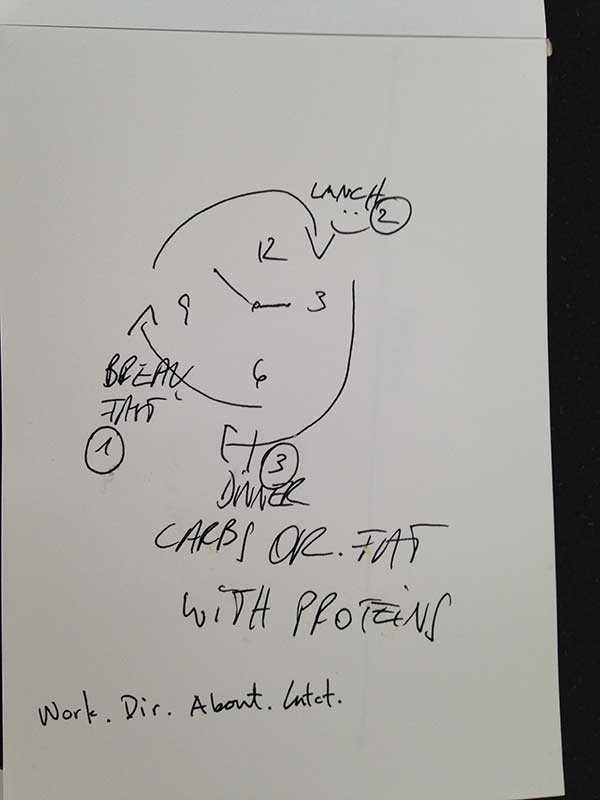 LANCH
2
12
9
3
6
BREAK
FAT
1
3
DINNER
CARBS OR. FAT
WITH PROTEINS
Work. Dir. About. Cntct.